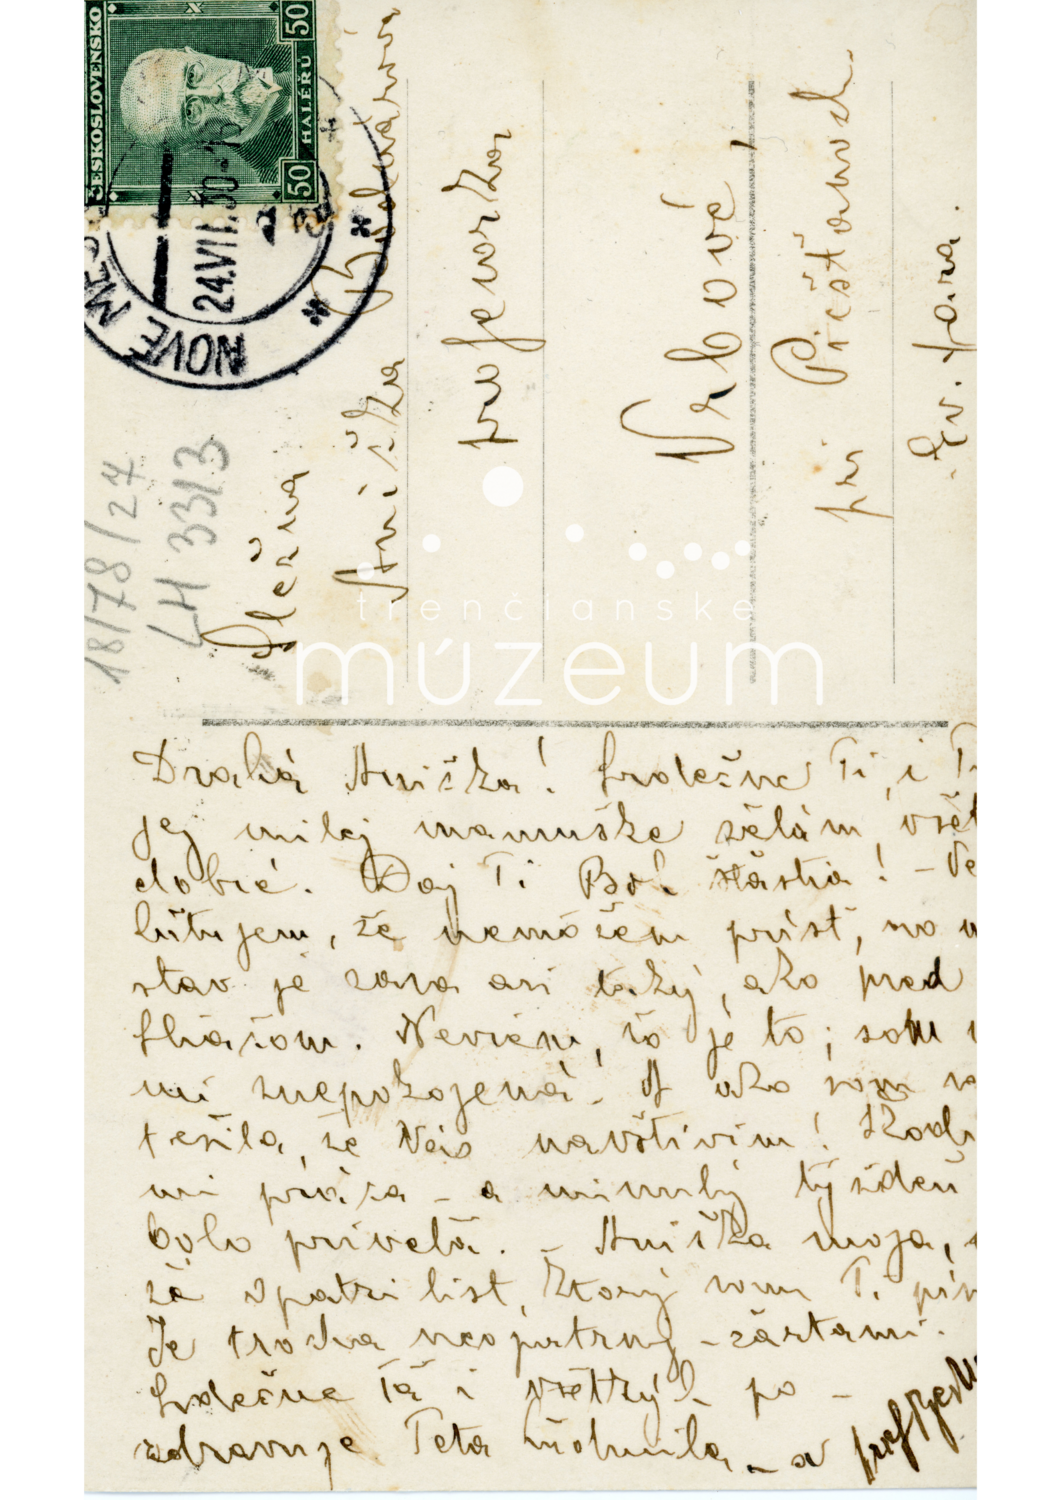 ČESKOSLOVENSKO
50
HALÉŘU
50
NOVÉ MES
24.VII.30
18/78/24
LH 3313
Slečna
Aniška Bodnárová
profesorka
Vrbové
pri Piešťanoch.
Ev. fara.
trenčianske
múzeum
Drahá Aniška! Srdečne Ti, i T
jej milej mamuške želám, všet
dobré. Daj Ti Boh šťastia! – Ve
ľutujem, že nemôžem prísť, no
stav je zasa asi taký, ako pred
Sliačom. Neviem, čo je to; som
mi znepokojená. A ako som sa
tešila, že Vás navštívim!
mi práca – a minulý týždeň
bolo priveľa. – Aniška moja,
že opatri list, ktorý som Ti pís
Je trocha neopatrný – častami.
Srdečne Ťa i všetkých po –
zdravuje Teta Ľudmila – a prof